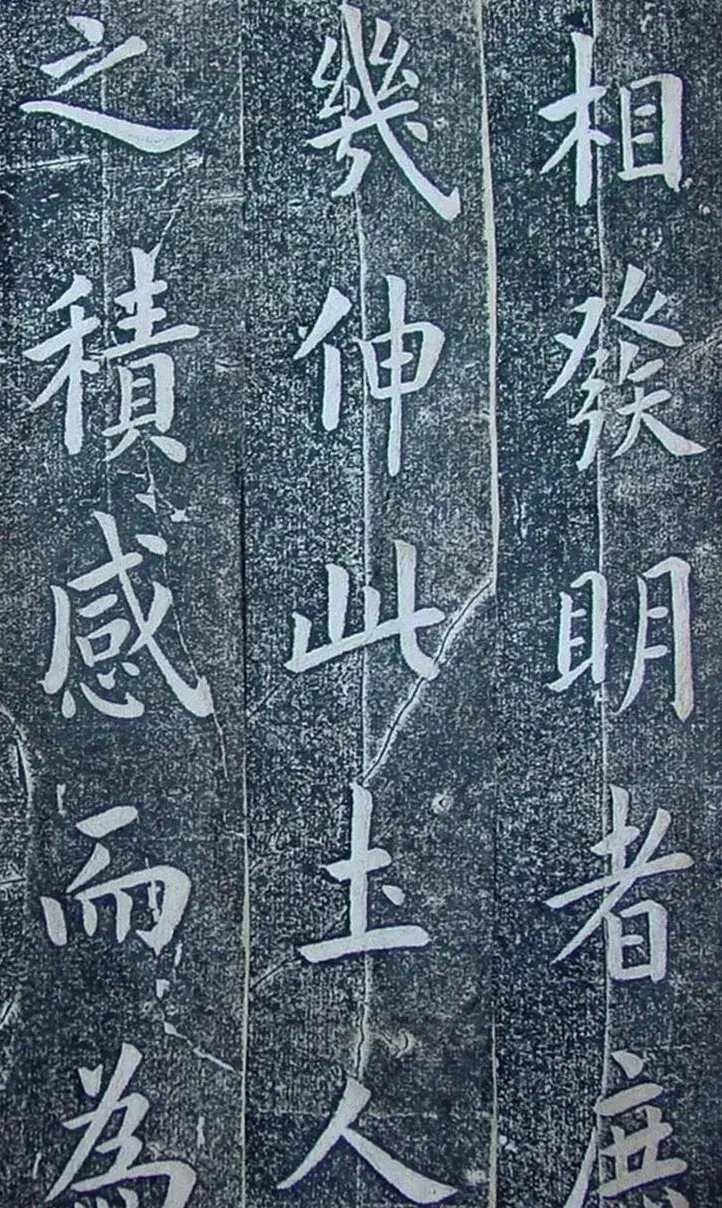 相發明者庶
幾伸此土人
之積感而為